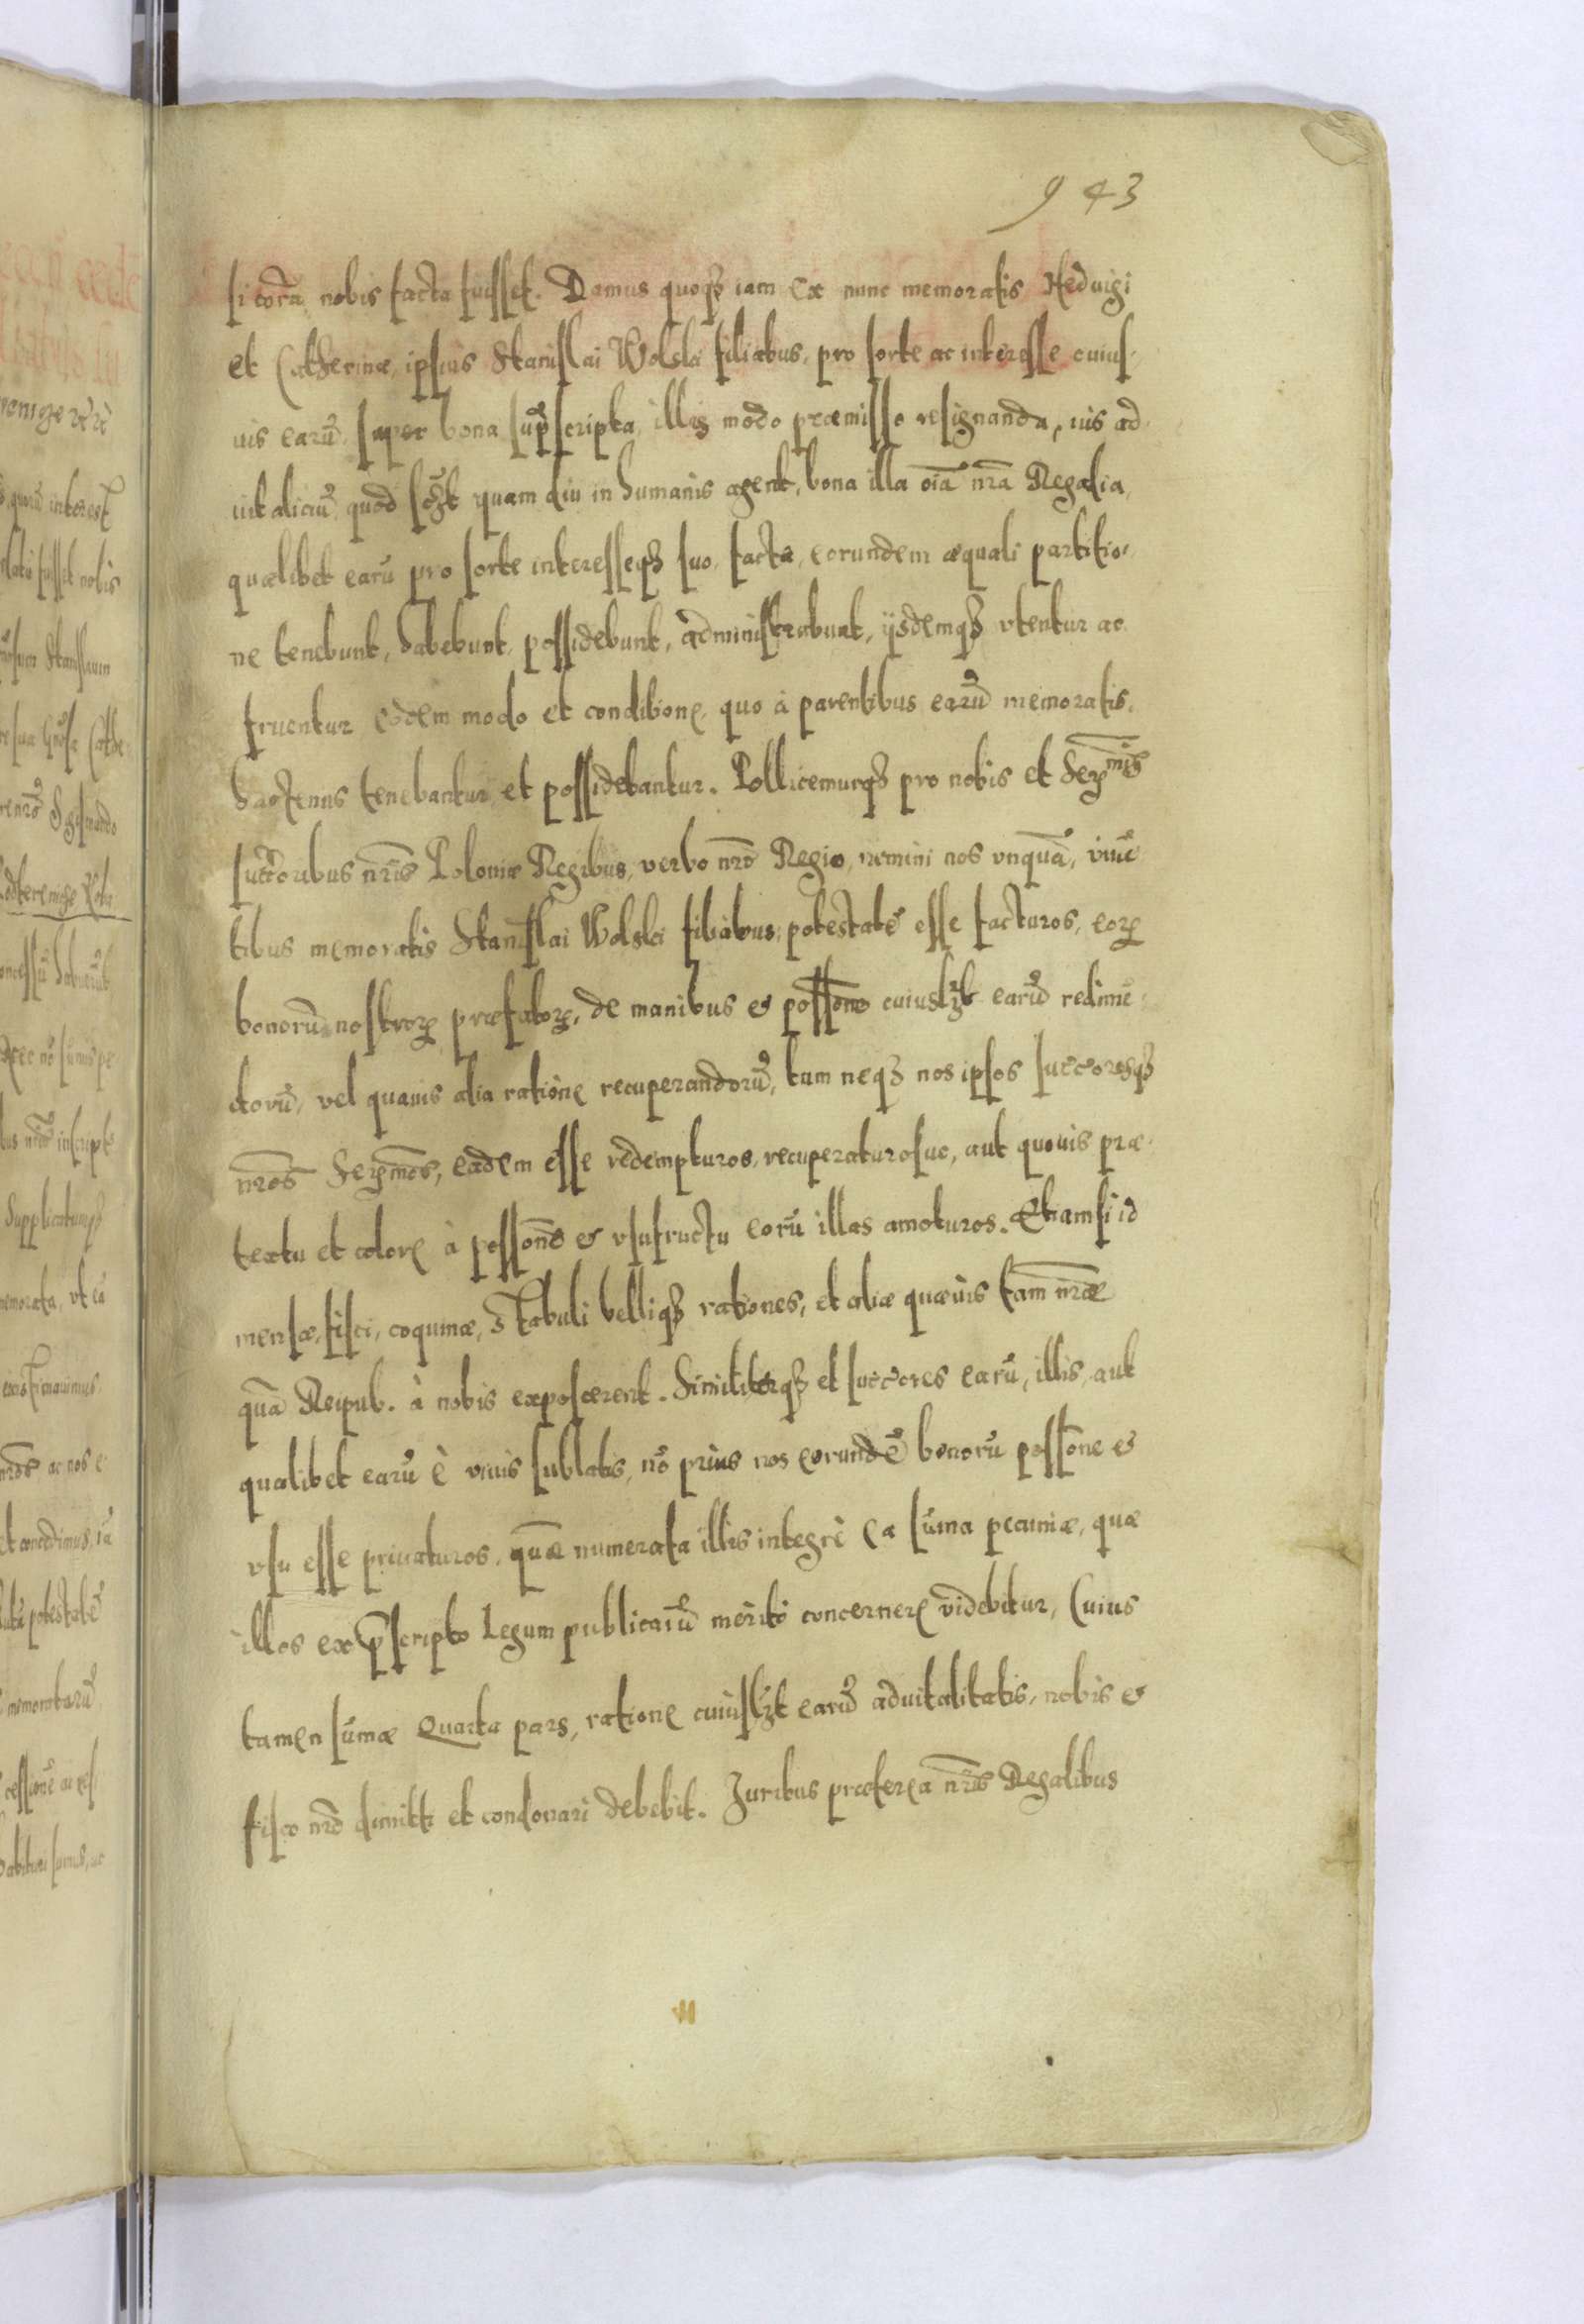 943
si corã nobis facta fuisset. Damus quoqȝ iam ex nunc memoratis Hedvigi
et Catherinæ, ipsius Stanislai Wolski filiabus, pro sorte ac interesse cuius-
uis earũ, super bona supscripta, illis modo præmisso resignanda, ius ad-
uitaliciũ, quod scȝt quam diu in humanis agent, bona illa oĩa nr̃a Regalia,
quælibet earũ pro sorte interesseqȝ suo, facta, eorundem æquali partitio-
ne tenebunt, habebunt, possidebunt, administrabunt, ijsdemqȝ vtentur ac
fruentur eodem modo et conditione, quo à parentibus earũ memoratis,
hactenus tenebantur et possidebantur. Pollicemurqȝ pro nobis et Serꝫmis
succr̃oribus nr̃is Poloniæ Regibus, verbo nr̃o Regio, nemini nos vnquã, viuẽ-
tibus memoratis Stanislai Wolski filiabus, potestatẽ esse facturos, eorꝫ
bonorũ nostrorꝫ præfatorꝫ, de manibus & possõne cuiuslȝt earũ redimẽ-
dorũ, vel quauis alia ratione recuperandorũ, tum neqȝ nos ipsos succoresqȝ
nr̃os Serꝫmos, eadem esse redempturos, recuperaturosue, aut quouis præ-
textu et colore à possõne & vsufructu eorũ illas amoturos. Etiamsi id
mensæ, fisci, coquinæ, stabuli belliqȝ rationes, et aliæ quæuis tam nr̃æ
quã Reipub. à nobis exposcerent. Similiterqȝ et succores earũ, illis, aut
qualibet earũ è viuis sublatis, nõ prius nos eorundẽ bonorũ possõne &
vsu esse priuaturos, quã numerata illis integrè ea sũma pecuniæ, quæ
illos ex p̃scripto Legum publicarũ meritò concernere videbitur, Cuius
tamen sũmæ Quarta pars, ratione cuiuslȝt earũ aduitalitatis, nobis &
fisco nr̃o dimitti et condonari debebit. Juribus præterea nr̃is Regalibus